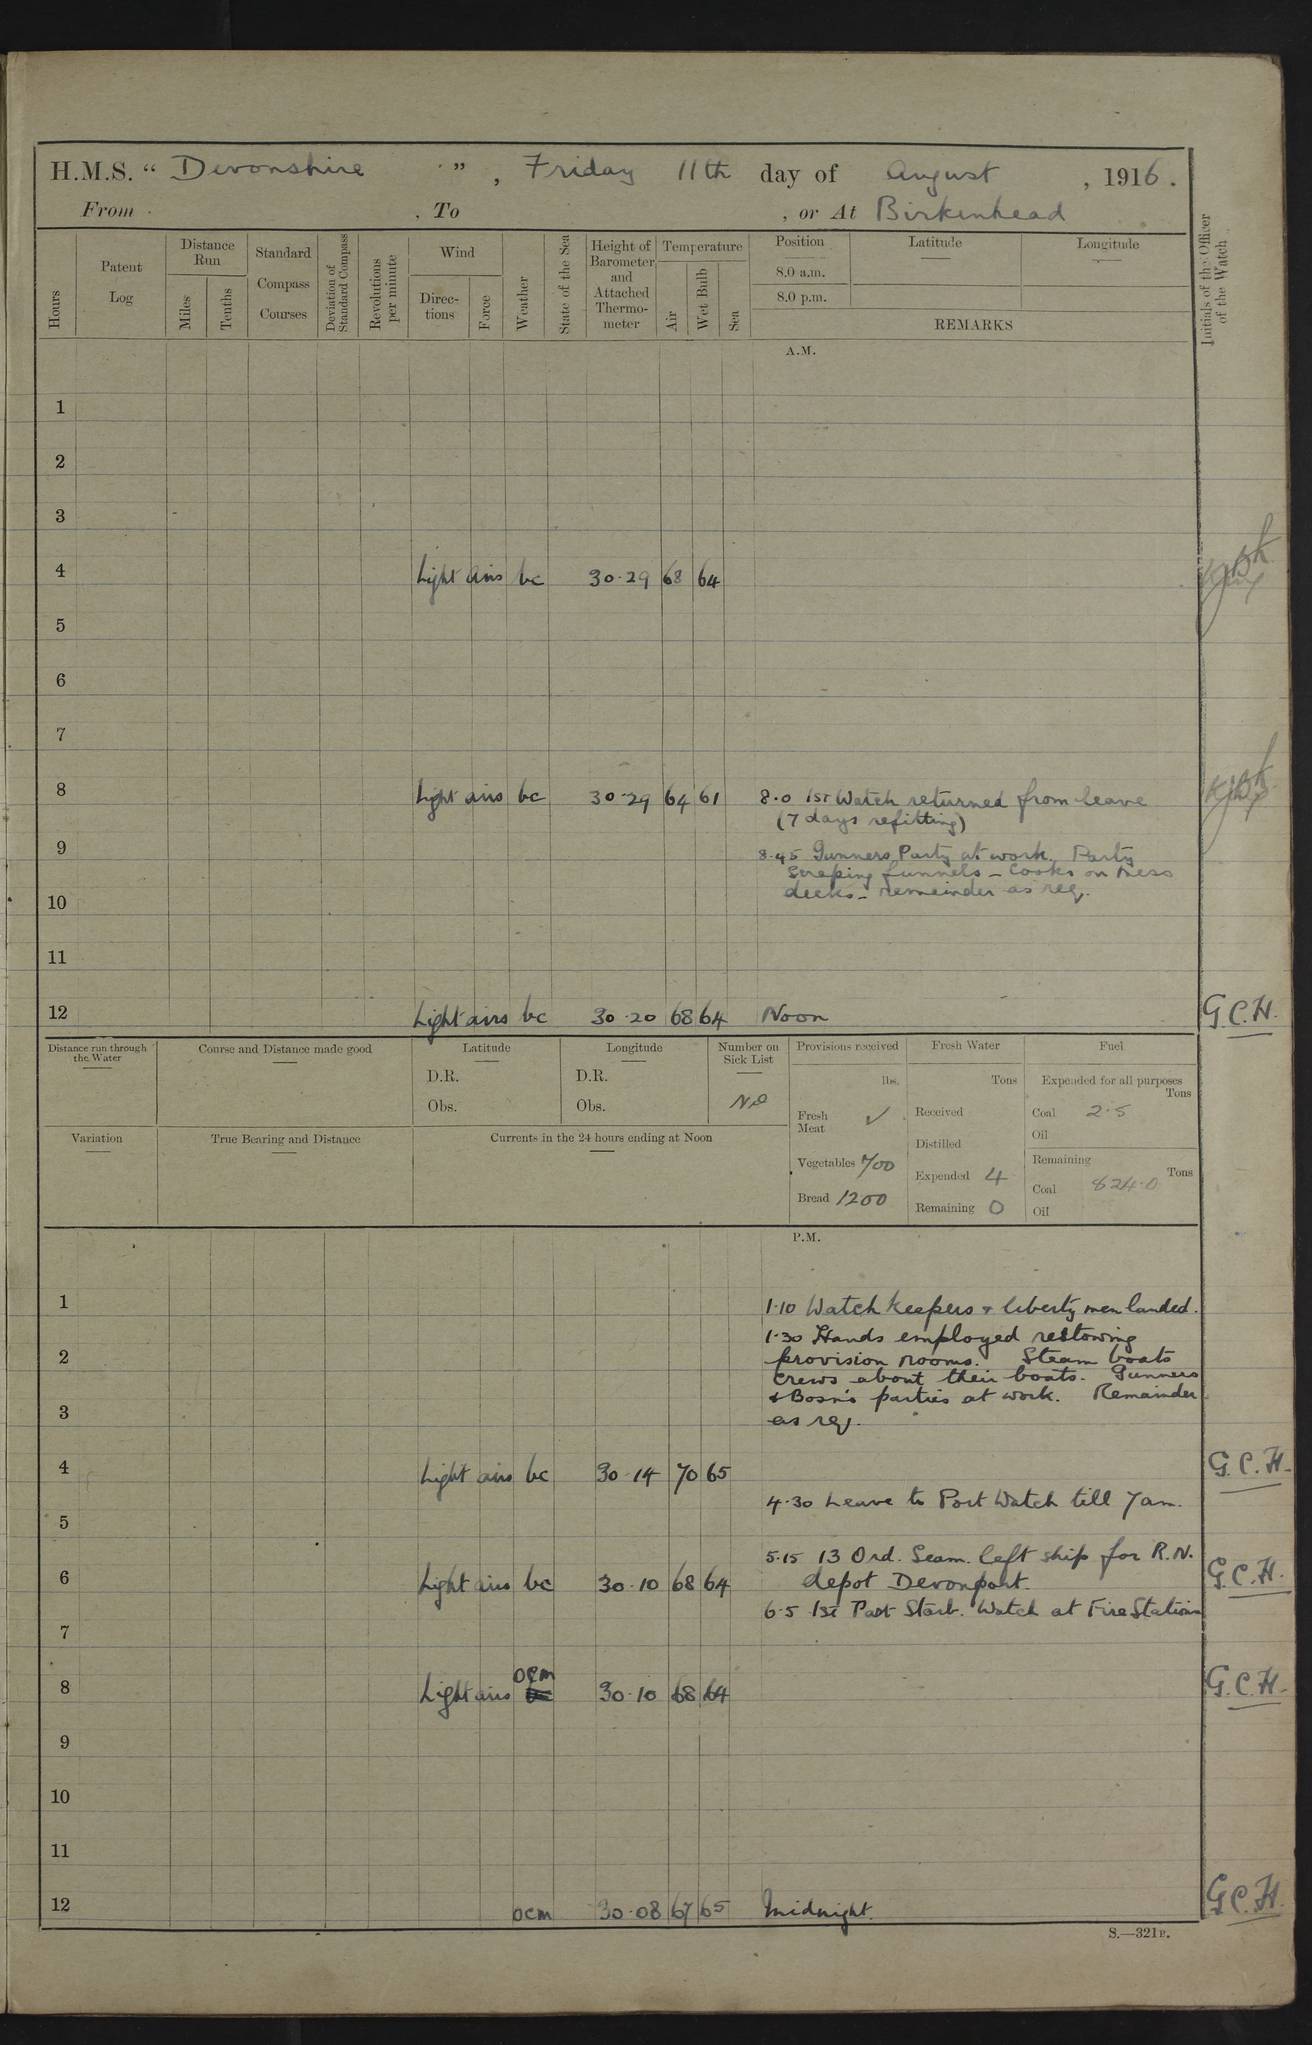 H.M.S. “ Devonshire ” , Friday 11th day of August , 1916.
From , To , or At Birkenhead
Hours
Patent Log
Distance Run
Miles
Tenths
Standard Compass Courses
Deviation of Standard Compass
Revolutions per minute
Wind
Direc-tions
Force
Weather
State of the Sea
Height of Barometer and Attached Thermo-meter
Temperature
Air
Wet Bulb
Sea
Position
Latitude
Longitude
8.0 a.m.
8.0 p.m.
REMARKS
Initials of the Officer of the Watch
A.M.
1
2
3
4 Light airs bc 30·29 68 64
5
6
7
8 Light airs bc 30·29 64 61 8·0 1st Watch returned from leave
(7 days refitting)
9 8·45 Gunners Party at work. Party
scraping funnels – Cooks on Mess
10 decks – remainder as req.
11
12 Light airs bc 30·20 68 64 Noon G.C.H.
Distance run through the Water
Course and Distance made good
Latitude
D.R.
Obs.
Longitude
D.R.
Obs.
Number on Sick List
Provisions received
lbs.
Fresh Meat ✓
Vegetables 700
Bread 1200
Fresh Water
Tons
Received
Distilled
Expended 4
Remaining 0
Fuel
Expended for all purposes
Tons
Coal 2·5
Oil
Remaining
Tons
Coal 824·0
Oil
Variation
True Bearing and Distance
Currents in the 24 hours ending at Noon
P.M.
1 1·10 Watch keepers & liberty men landed.
1·30 Hands employed restowing
2 provision rooms. Steam boats
crews about their boats. Gunners
& Bosn's parties at work. Remainder
3 as req.
4 Light airs bc 30·14 70 65 G.C.H.
4·30 Leave to Port Watch till 7am.
5
5·15 13 Ord. Seam. left ship for R.N.
6 Light airs bc 30·10 68 64 depot Devonport. G.C.H.
6·5 1st Part Starb. Watch at Fire Stations
7
8 Light airs ocm 30·10 68 64 G.C.H.
9
10
11
12 ocm 30·08 67 65 Midnight. G.C.H.
S.—321B.